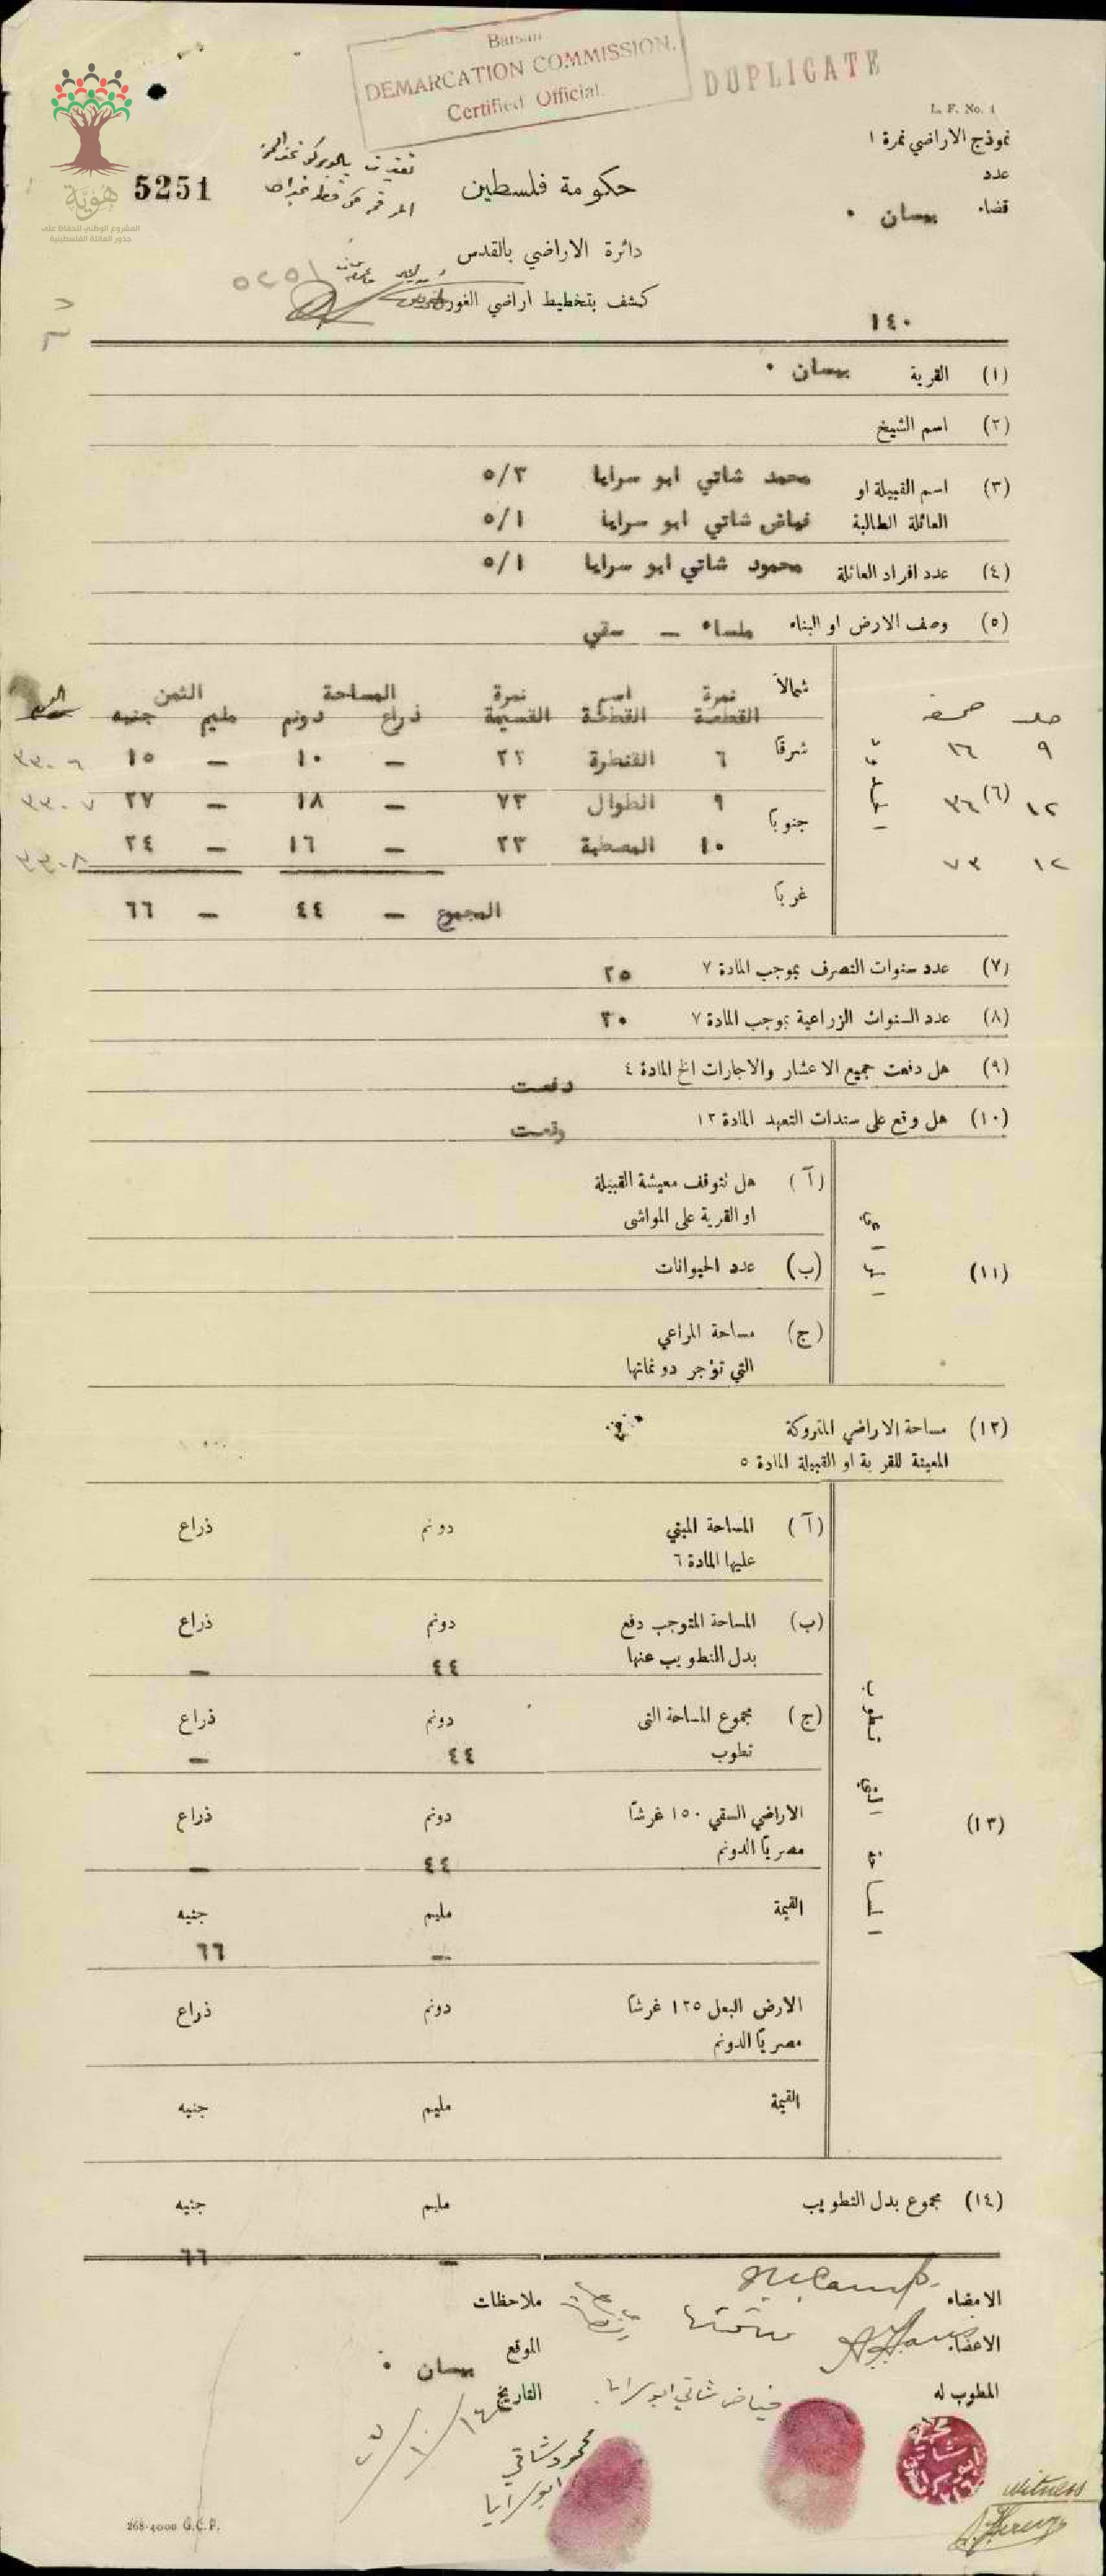 Baisan
DEMARCATION COMMISSION.
Certified Official.
DUPLICATE
L. F. No. 1
نموذج الاراضي نمرة ١
عدد
قضاء بيسان .
هوية
المشروع الوطني للحفاظ على
جذور العائلة الفلسطينية
5251
حكومة فلسطين
دائرة الاراضي بالقدس
٥٢٥١
كشف بتخطيط اراضي الغور
١٤٠
(١) القرية بيسان .
(٢) اسم الشيخ
(٣) اسم القبيلة او محمد شاتي ابو سرايا ٥/٣
العائلة الطالبة فياض شاتي ابو سرايا ٥/١
(٤) عدد افراد العائلة محمود شاتي ابو سرايا ٥/١
(٥) وصف الارض او البناء ملساء – سقي
(٦) الحدود
شمالاً
شرقاً
جنوباً
غرباً
جلد صحيفه
٩ ١٦
١٢ ٣٦
١٢ ٧٣
نمرة القطعة اسم القطعة نمرة القسيمة المساحة ذراع دونم الثمن مليم جنيه
٦ القنطرة ٢٢ – ١٠ – ١٥ ٣٣٠٦
٩ الطوال ٧٣ – ١٨ – ٢٧ ٣٣٠٧
١٠ المصطبة ٢٣ – ١٦ – ٢٤ ٣٣٠٨
المجموع – ٤٤ – ٦٦
(٧) عدد سنوات التصرف بموجب المادة ٧ ٢٥
(٨) عدد السنوات الزراعية بموجب المادة ٧ ٢٠
(٩) هل دفعت جميع الاعشار والاجارات الخ المادة ٤ دفعت
(١٠) هل وقع على سندات التعهد المادة ١٣ وقعت
(١١)
(آ) هل تتوقف معيشة القبيلة
او القرية على المواشى
(ب) عدد الحيوانات
(ج) مساحة المراعي
التي تؤجر دونماتها
(١٢) مساحة الاراضي المتروكة
المعينة للقرية او القبيلة المادة ٥
(١٣) المساحة التي تطوب
(آ) المساحة المبني دونم ذراع
عليها المادة ٦
(ب) المساحة المتوجب دفع دونم ذراع
بدل التطويب عنها ٤٤ –
(ج) مجموع المساحة التى دونم ذراع
تطوب ٤٤ –
الاراضي السقي ١٥٠ غرشاً دونم ذراع
مصرياً الدونم ٤٤ –
القيمة مليم جنيه
– ٦٦
الارض البعل ١٢٥ غرشاً دونم ذراع
مصرياً الدونم
القيمة مليم جنيه
(١٤) مجموع بدل التطويب مليم جنيه
– ٦٦
الامضاء ملاحظات
الاعضاء الموقع بيسان .
المطوب له فياض شاتي ابو سرايا التاريخ
محمود شاتي
ابو سرايا
witness
268-4000 G.C.P.